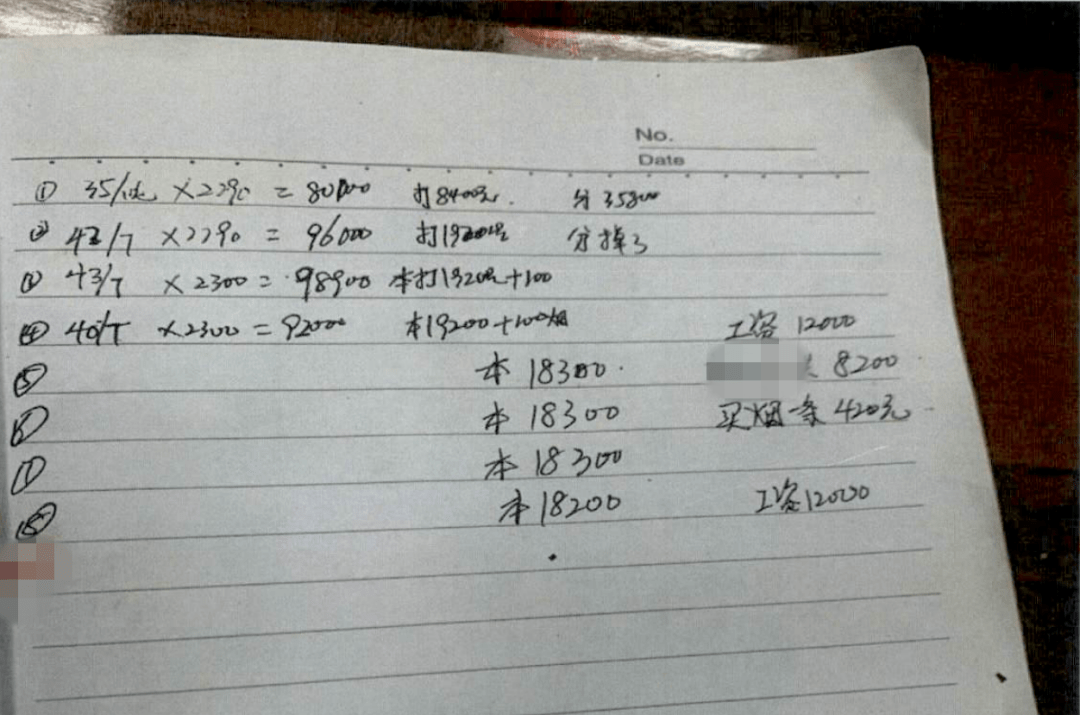 No.
Date
① 35/吨 ×2290 = 80000 打8400元. 分35800
② 42/T ×2290 = 96000 分掉了
43/T ×2300 = 98900 本打19200+100
④ 40/T ×2300 = 92000 本19200+100烟 工资 12000
⑤ 本 18300. 8200
本 18300 买烟一条 420元
本 18300
本 18200 工资12000